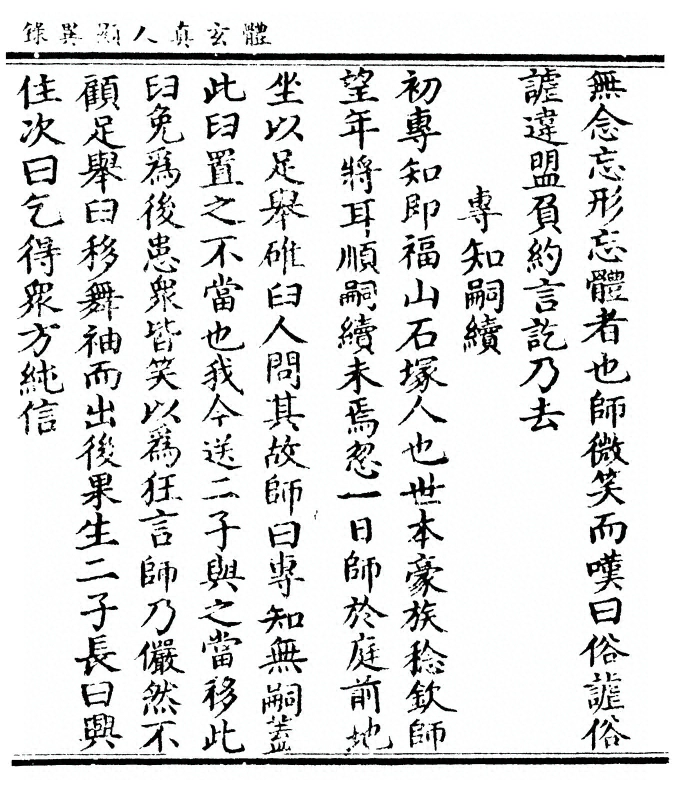 體玄真人顯異錄
無念忘形忘體者也師微笑而嘆曰俗謔俗
謔違盟負約言訖乃去
專知嗣續
初專知即福山石塚人也世本豪族稔欽師
望年將耳順嗣續未焉忽一日師於庭前地
坐以足舉碓臼人問其故師曰專知無嗣蓋
此臼置之不當也我今送二子與之當移此
臼免爲後患衆皆笑以爲狂言師乃儼然不
顧足舉臼移舞袖而出後果生二子長曰興
住次曰乞得衆方純信